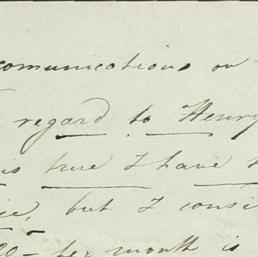 comunications on
regard to Henry
is true I have
but I consi
per month is